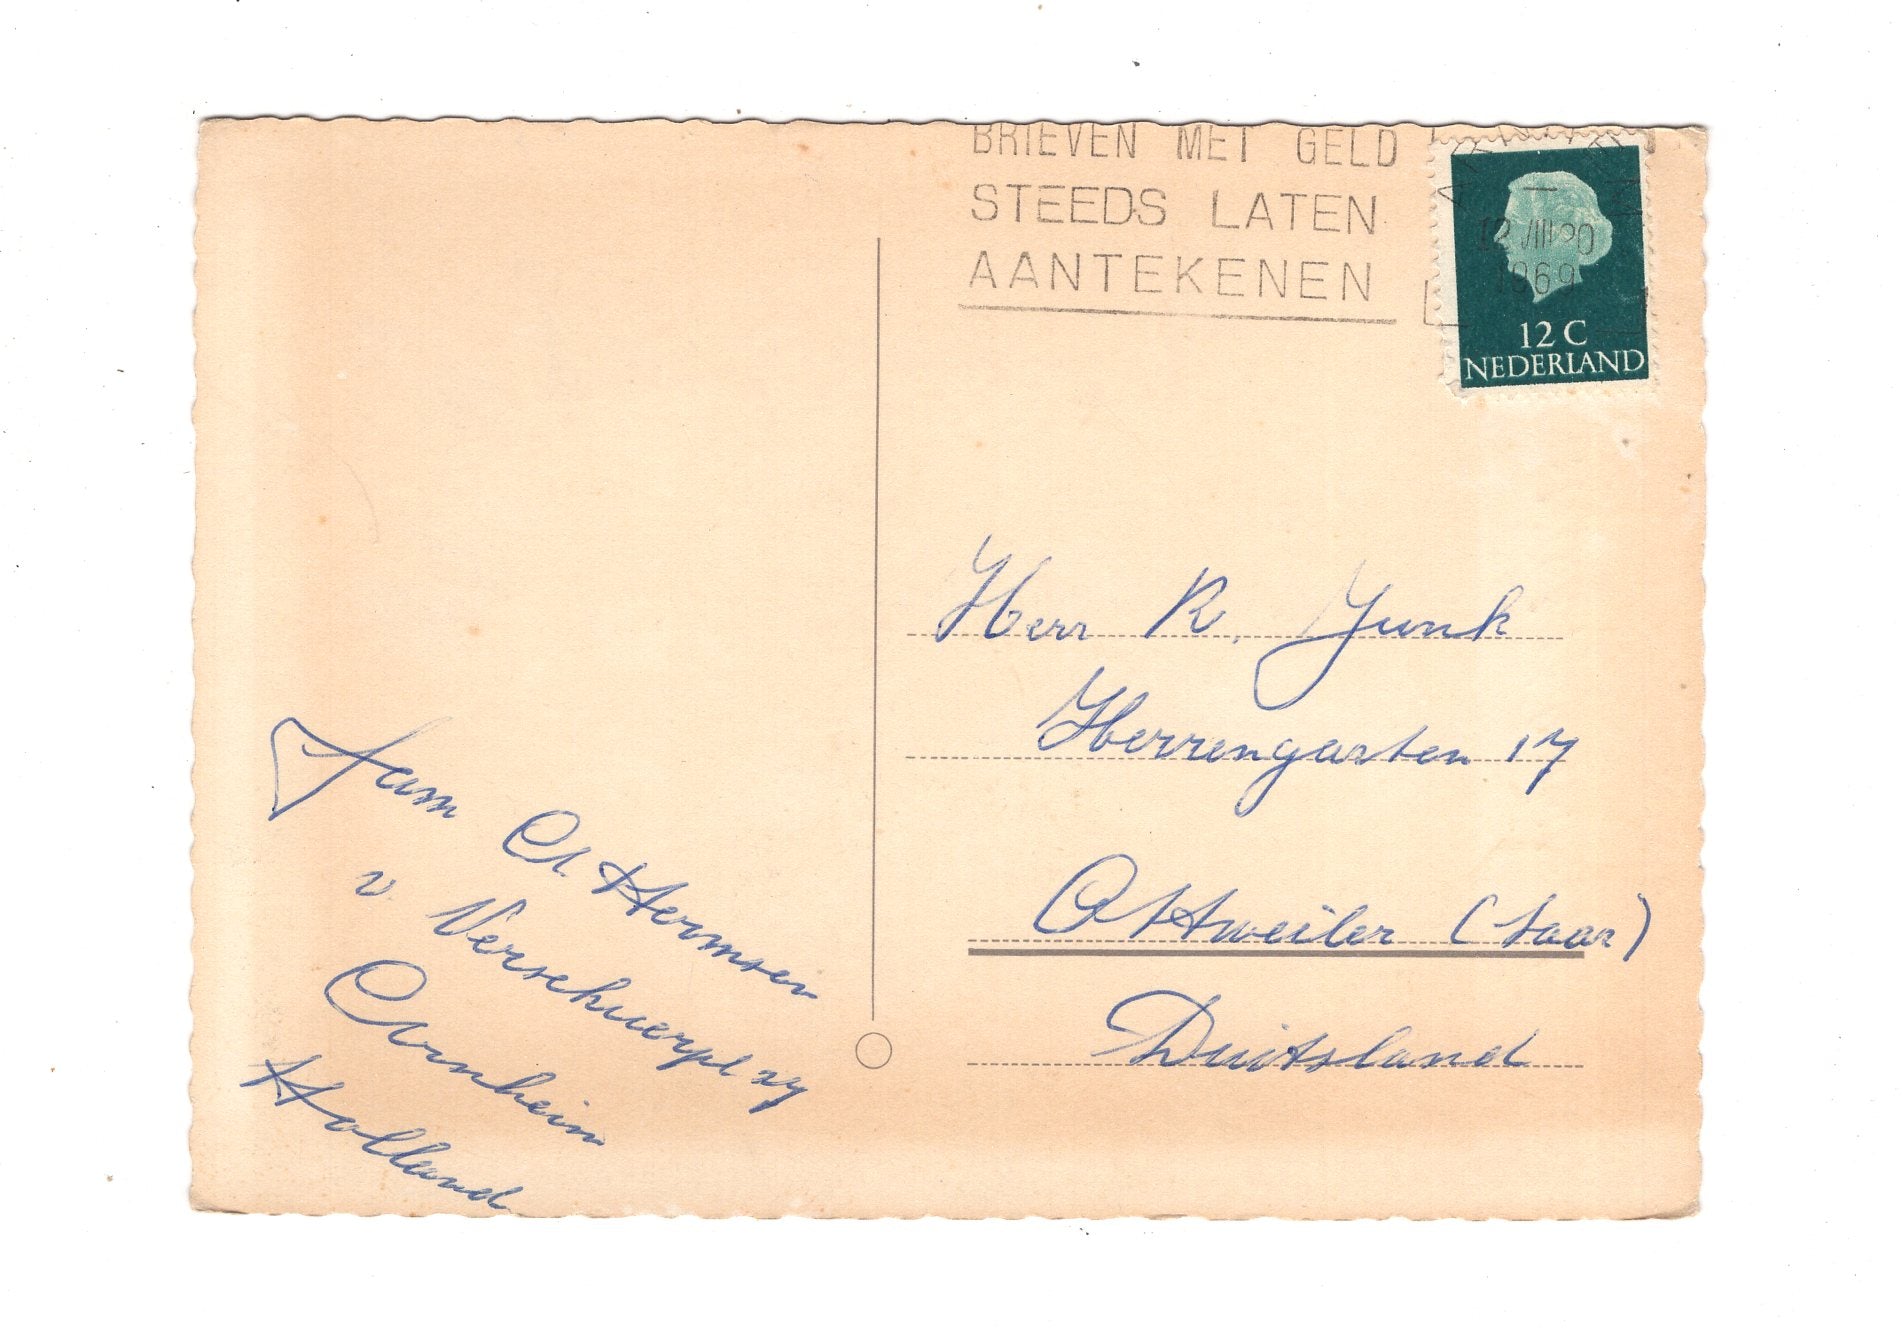 BRIEVEN MET GELD
STEEDS LATEN
AANTEKENEN
12 VIII 20
1969
12 C
NEDERLAND
Herr R. Junk
Herrengarten 17
Ottweiler (Saar)
Duitsland
Fam A Hermsen
v. Verschuerpl 27
Arnheim
Holland